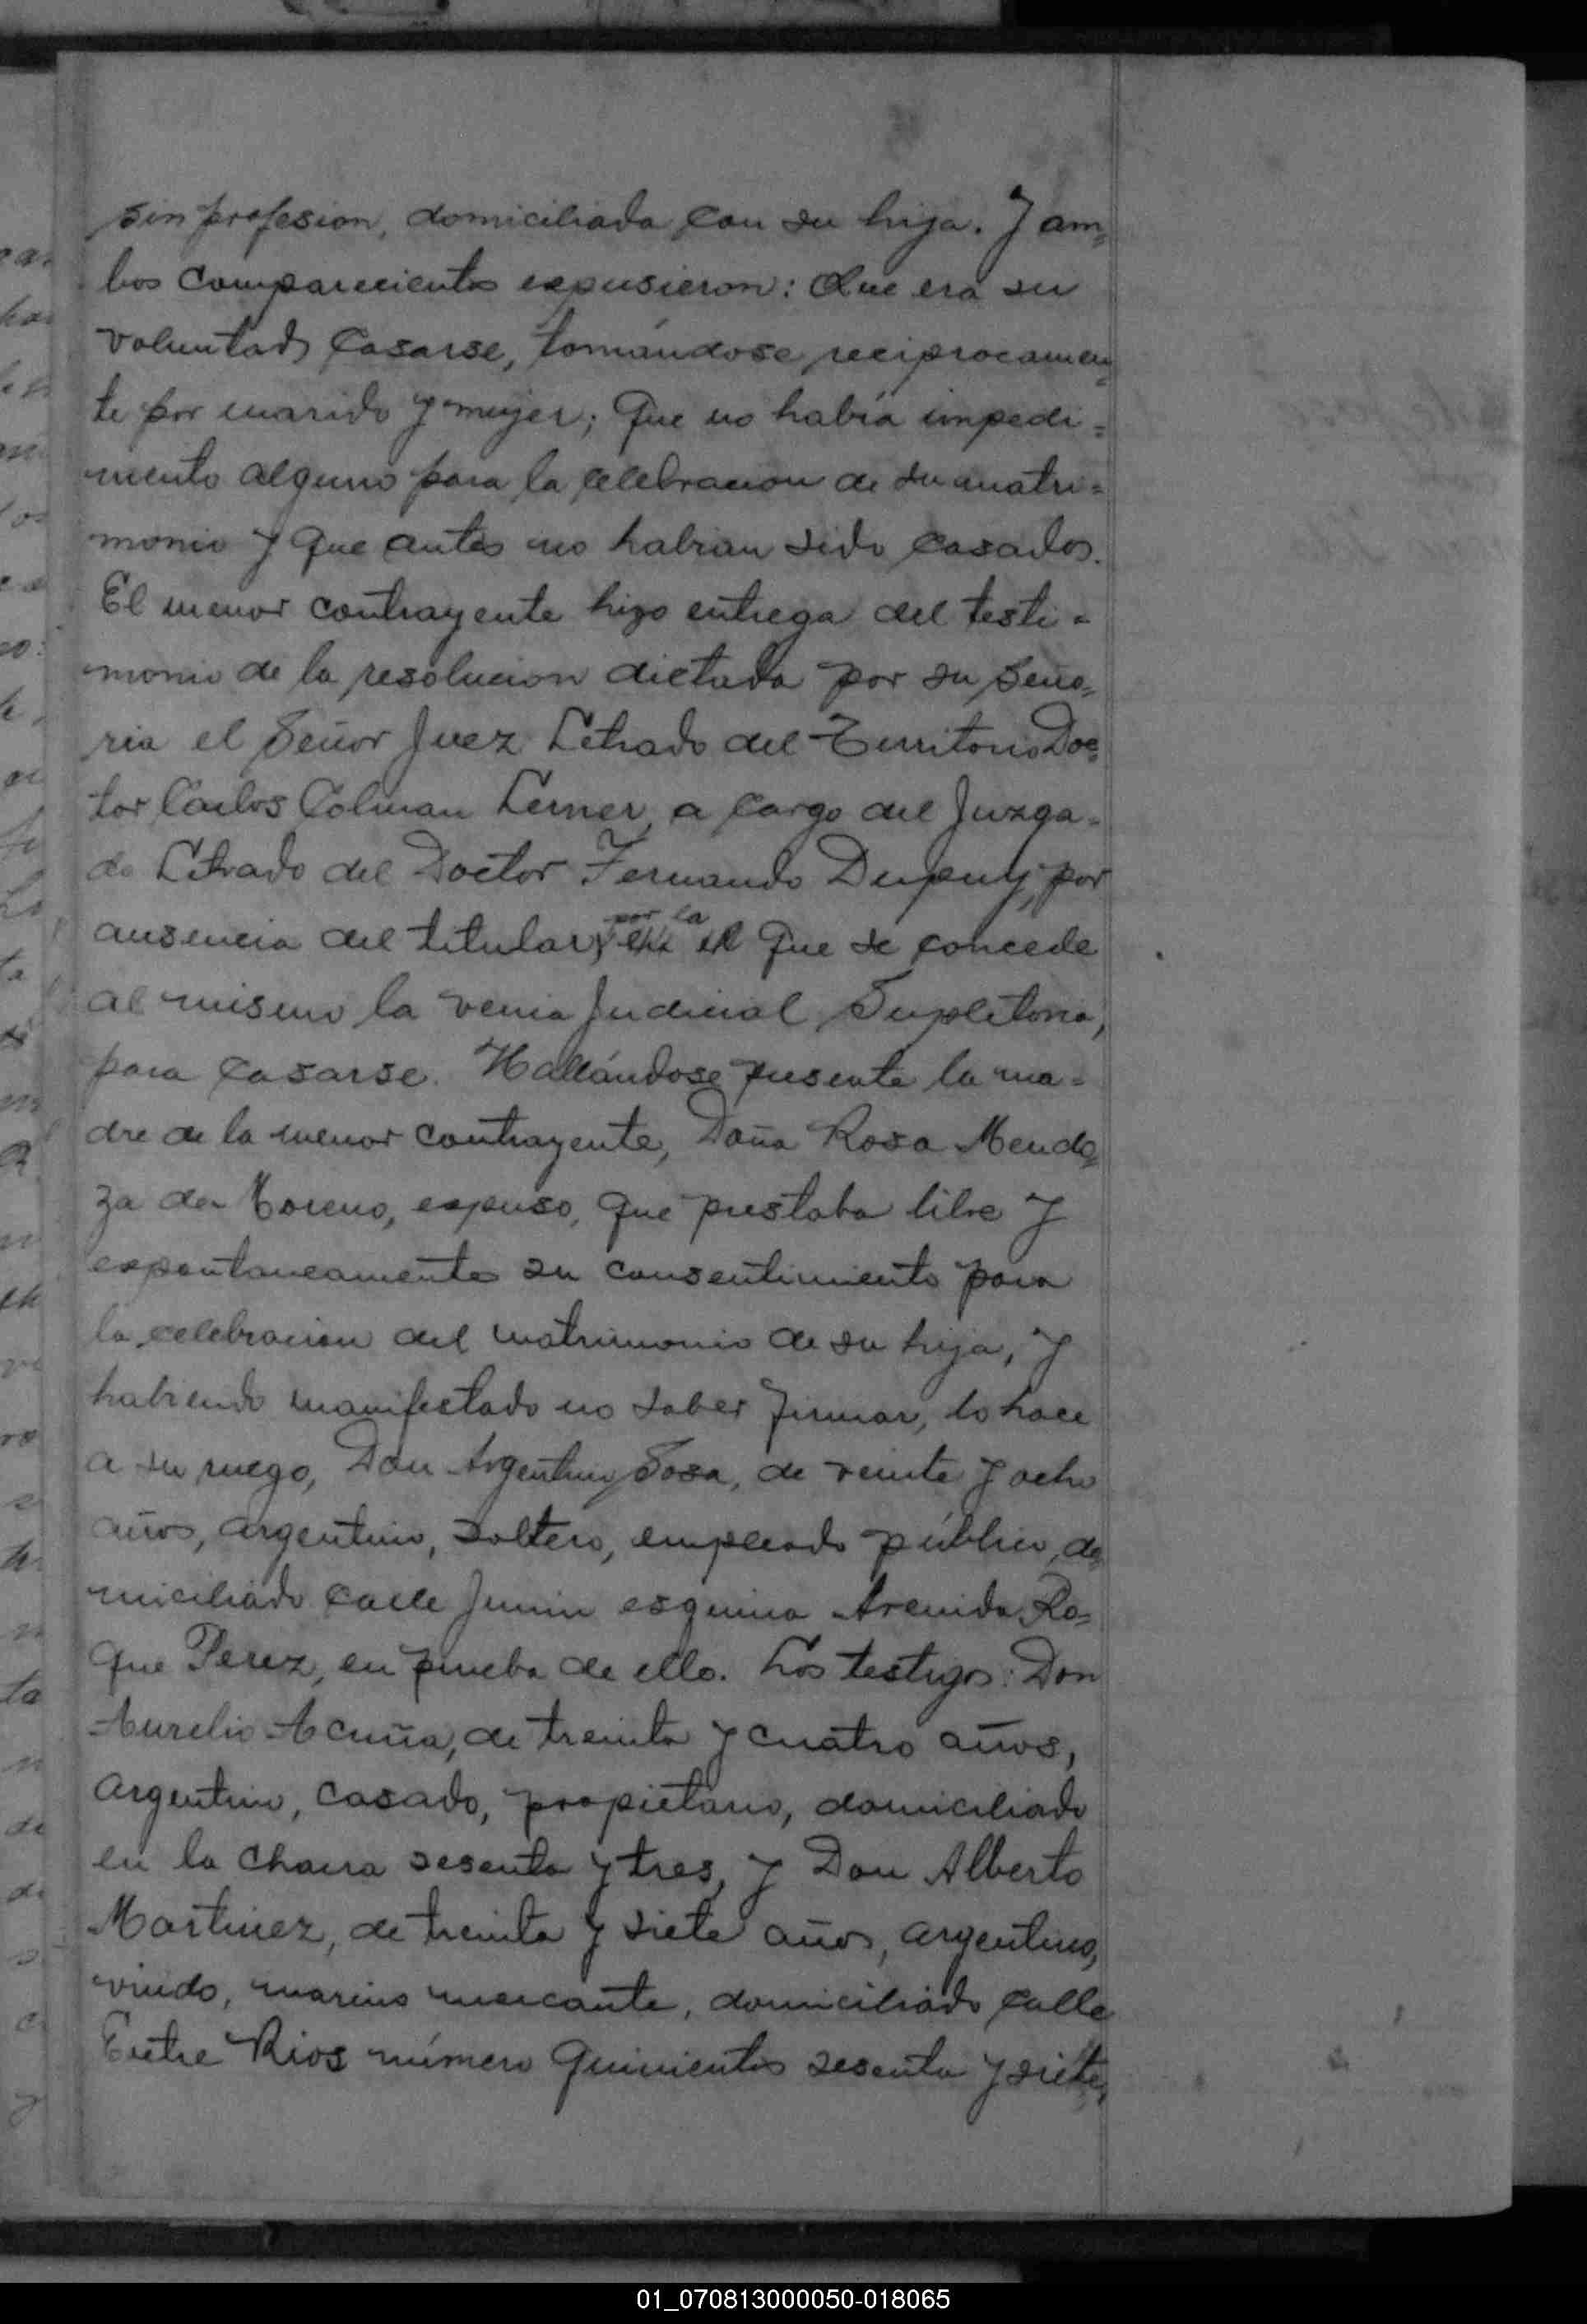 sin profesion, domiciliada con su hija. Y am=
bos comparecientes expusieron: Que era su
voluntad casarse, tomándose reciprocamen=
te por marido y mujer; Que no había impedi=
mento alguno para la celebracion de su matri=
monio y que antes no habian sido casados.
El menor contrayente hizo entrega del testi=
monio de la resolucion dictada por su Seño=
ria el Señor Juez Letrado del Territorio Doc=
tor Carlos Colman Lerner, a cargo del Juzga=
do Letrado del Doctor Fernando Dupuy, por
ausencia del titular, por la que se concede
al mismo la venia Judicial Supletoria,
para casarse. Hallándose presente la ma=
dre de la menor contrayente, Doña Rosa Mendo=
za de Moreno, expuso, que prestaba libre y
espontaneamente su consentimiento para
la celebracion del matrimonio de su hija, y
habiendo manifestado no saber firmar, lo hace
a su ruego, Don Argentino Sosa, de veinte y ocho
años, argentino, soltero, empleado público, do=
miciliado calle Junin esquina Avenida Ro=
que Perez, en prueba de ello. Los testigos: Don
Aurelio Acuña, de treinta y cuatro años,
argentino, casado, propietario, domiciliado
en la chacra sesenta y tres, y Don Alberto
Martinez, de treinta y siete años, argentino,
viudo, marino mercante, domiciliado calle
Entre Rios número quinientos sesenta y siete,
01_070813000050-018065